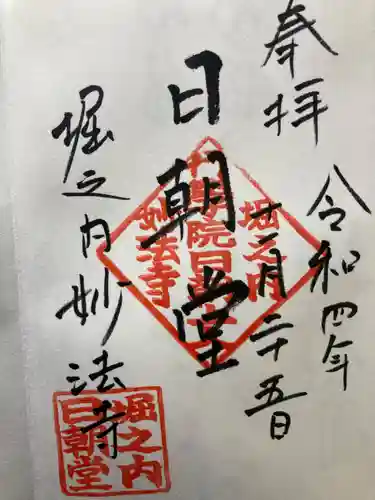 奉拝
令和四年
十二月二十五日
日朝堂
堀之内妙法寺
堀之内
妙法寺
堀之内
日朝堂